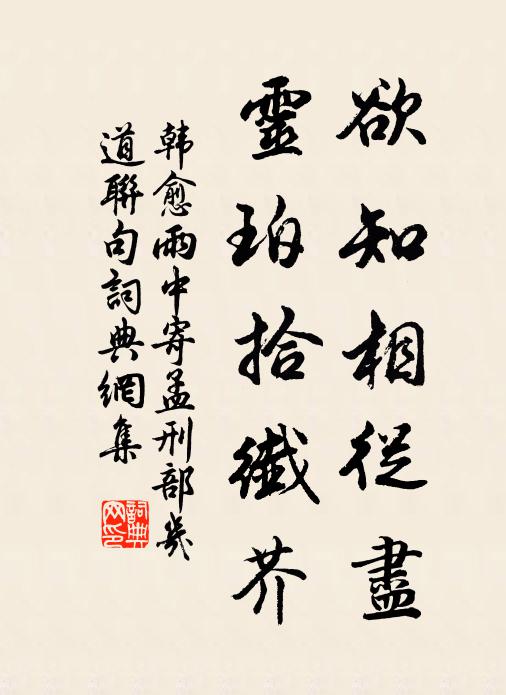 欲知相從盡
靈珀拾纖芥
韩愈雨中寄孟刑部幾
道聯句詞典網集
詞典
网印